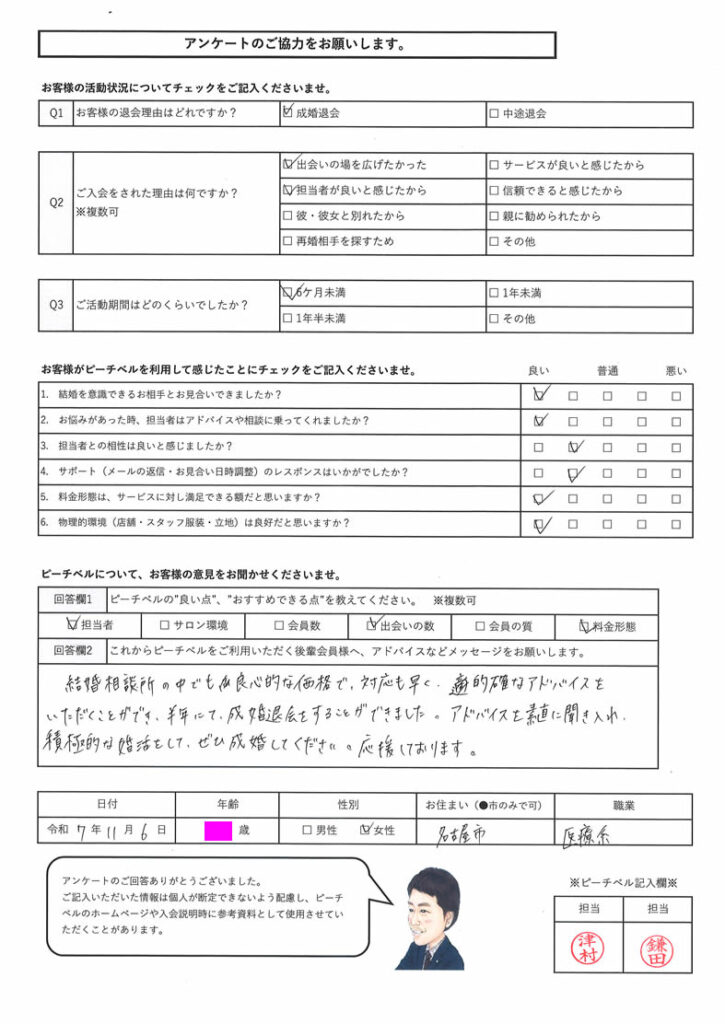 アンケートのご協力をお願いします。
お客様の活動状況についてチェックをご記入くださいませ。
Q1 お客様の退会理由はどれですか？ ☑ 成婚退会 □ 中途退会
Q2 ご入会をされた理由は何ですか？ ※複数可
☑ 出会いの場を広げたかった □ サービスが良いと感じたから
☑ 担当者が良いと感じたから □ 信頼できると感じたから
□ 彼・彼女と別れたから □ 親に勧められたから
□ 再婚相手を探すため □ その他
Q3 ご活動期間はどのくらいでしたか？
☑ 6ケ月未満 □ 1年未満
□ 1年半未満 □ その他
お客様がピーチベルを利用して感じたことにチェックをご記入くださいませ。 良い 普通 悪い
1. 結婚を意識できるお相手とお見合いできましたか？ ☑ □ □ □ □
2. お悩みがあった時、担当者はアドバイスや相談に乗ってくれましたか？ ☑ □ □ □ □
3. 担当者との相性は良いと感じましたか？ □ ☑ □ □ □
4. サポート（メールの返信・お見合い日時調整）のレスポンスはいかがでしたか？ □ ☑ □ □ □
5. 料金形態は、サービスに対し満足できる額だと思いますか？ ☑ □ □ □ □
6. 物理的環境（店舗・スタッフ服装・立地）は良好だと思いますか？ ☑ □ □ □ □
ピーチベルについて、お客様の意見をお聞かせくださいませ。
回答欄1 ピーチベルの"良い点"、"おすすめできる点"を教えてください。 ※複数可
☑ 担当者 □ サロン環境 □ 会員数 ☑ 出会いの数 □ 会員の質 ☑ 料金形態
回答欄2 これからピーチベルをご利用いただく後輩会員様へ、アドバイスなどメッセージをお願いします。
結婚相談所の中でも良心的な価格で、対応も早く、的確なアドバイスを
いただくことができ、半年にて、成婚退会をすることができました。アドバイスを素直に聞き入れ、
積極的な婚活をして、ぜひ成婚してください。応援しております。
日付 年齢 性別 お住まい（●市のみで可） 職業
令和 7 年 11 月 6 日 歳 □ 男性 ☑ 女性 名古屋市 医療系
アンケートのご回答ありがとうございました。
ご記入いただいた情報は個人が断定できないよう配慮し、ピーチ
ベルのホームページや入会説明時に参考資料として使用させてい
ただくことがあります。
※ピーチベル記入欄※
担当 担当
津村 鎌田